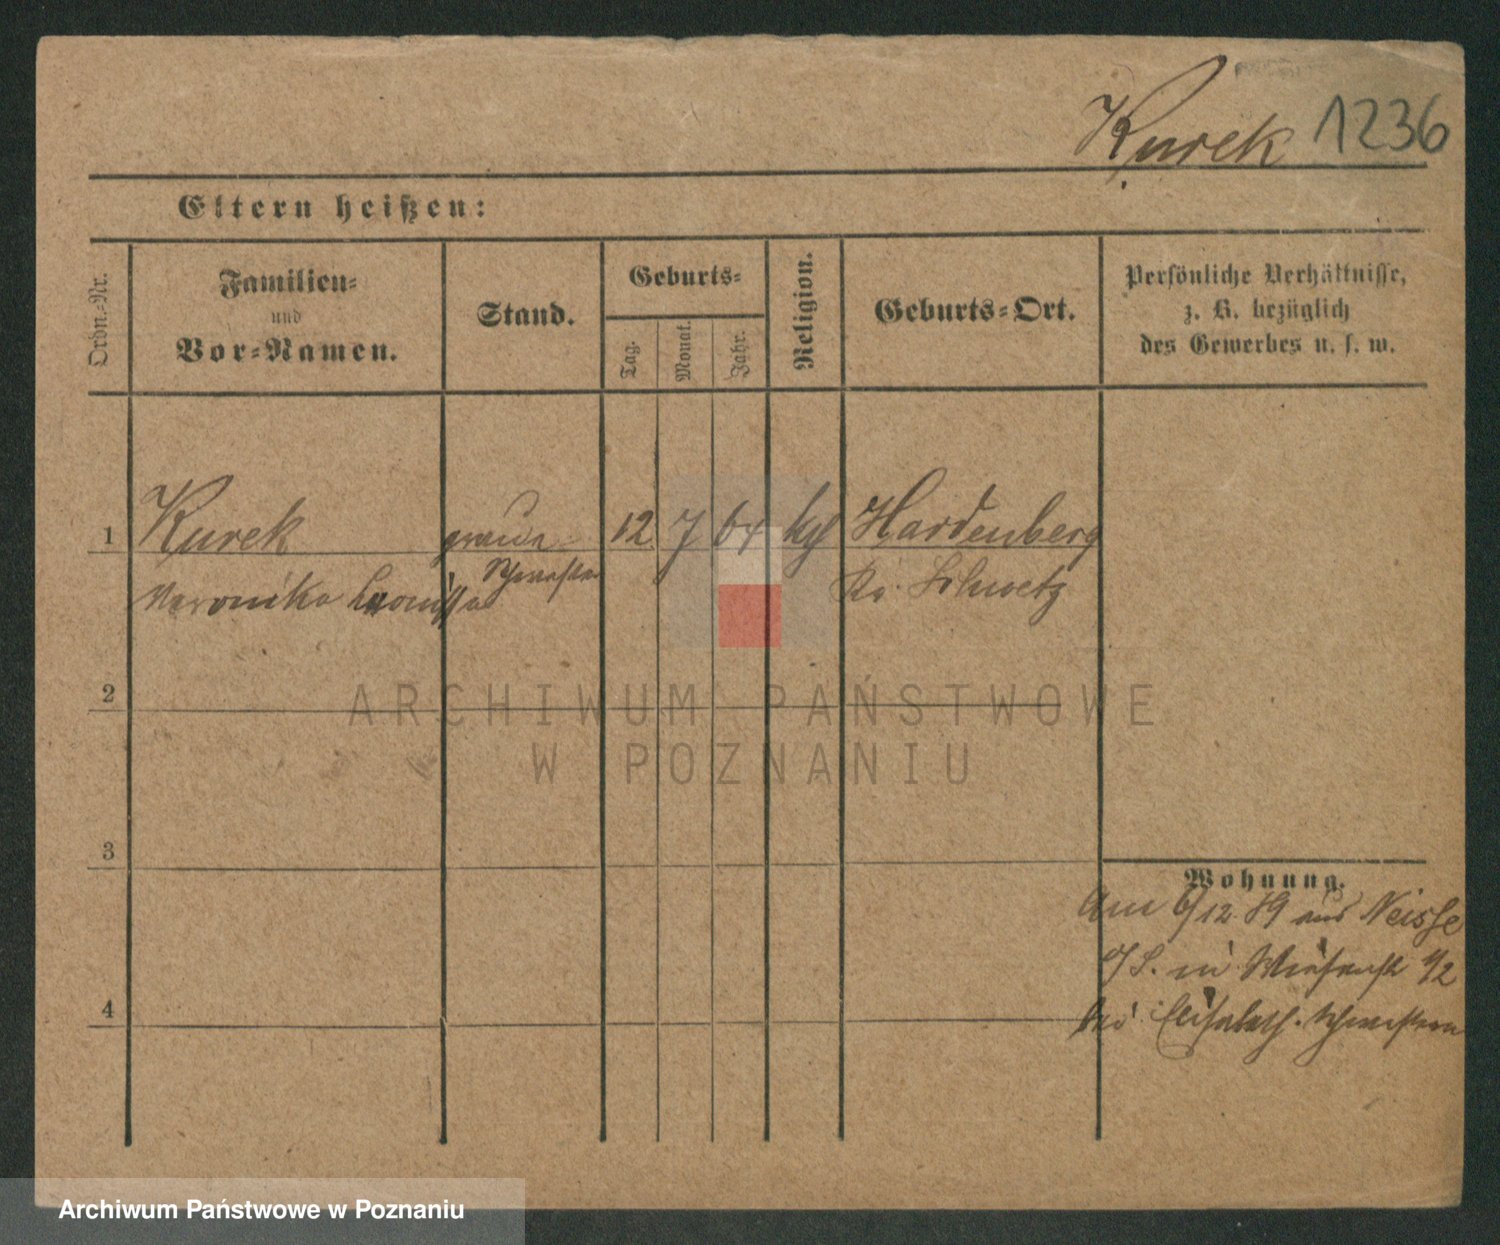 Kurek 1236
Eltern heißen:
Ordn.-Nr.
Familien-
und
Vor-Namen.
Stand.
Geburts-
Tag.
Monat.
Jahr.
Religion.
Geburts-Ort.
Persönliche Verhältnisse,
z. B. bezüglich
des Gewerbes u. s. w.
1 Kurek graue 12 7 64 kth Hardenberg
Schwester
Veronika Kr. Schwetz
2
3
4
Wohnung.
Am 6/12.89 aus Neisse
O/S. in Wiesenstr 1/2
bei Elisabeth. Schwestern
ARCHIWUM PAŃSTWOWE
W POZNANIU
Archiwum Państwowe w Poznaniu